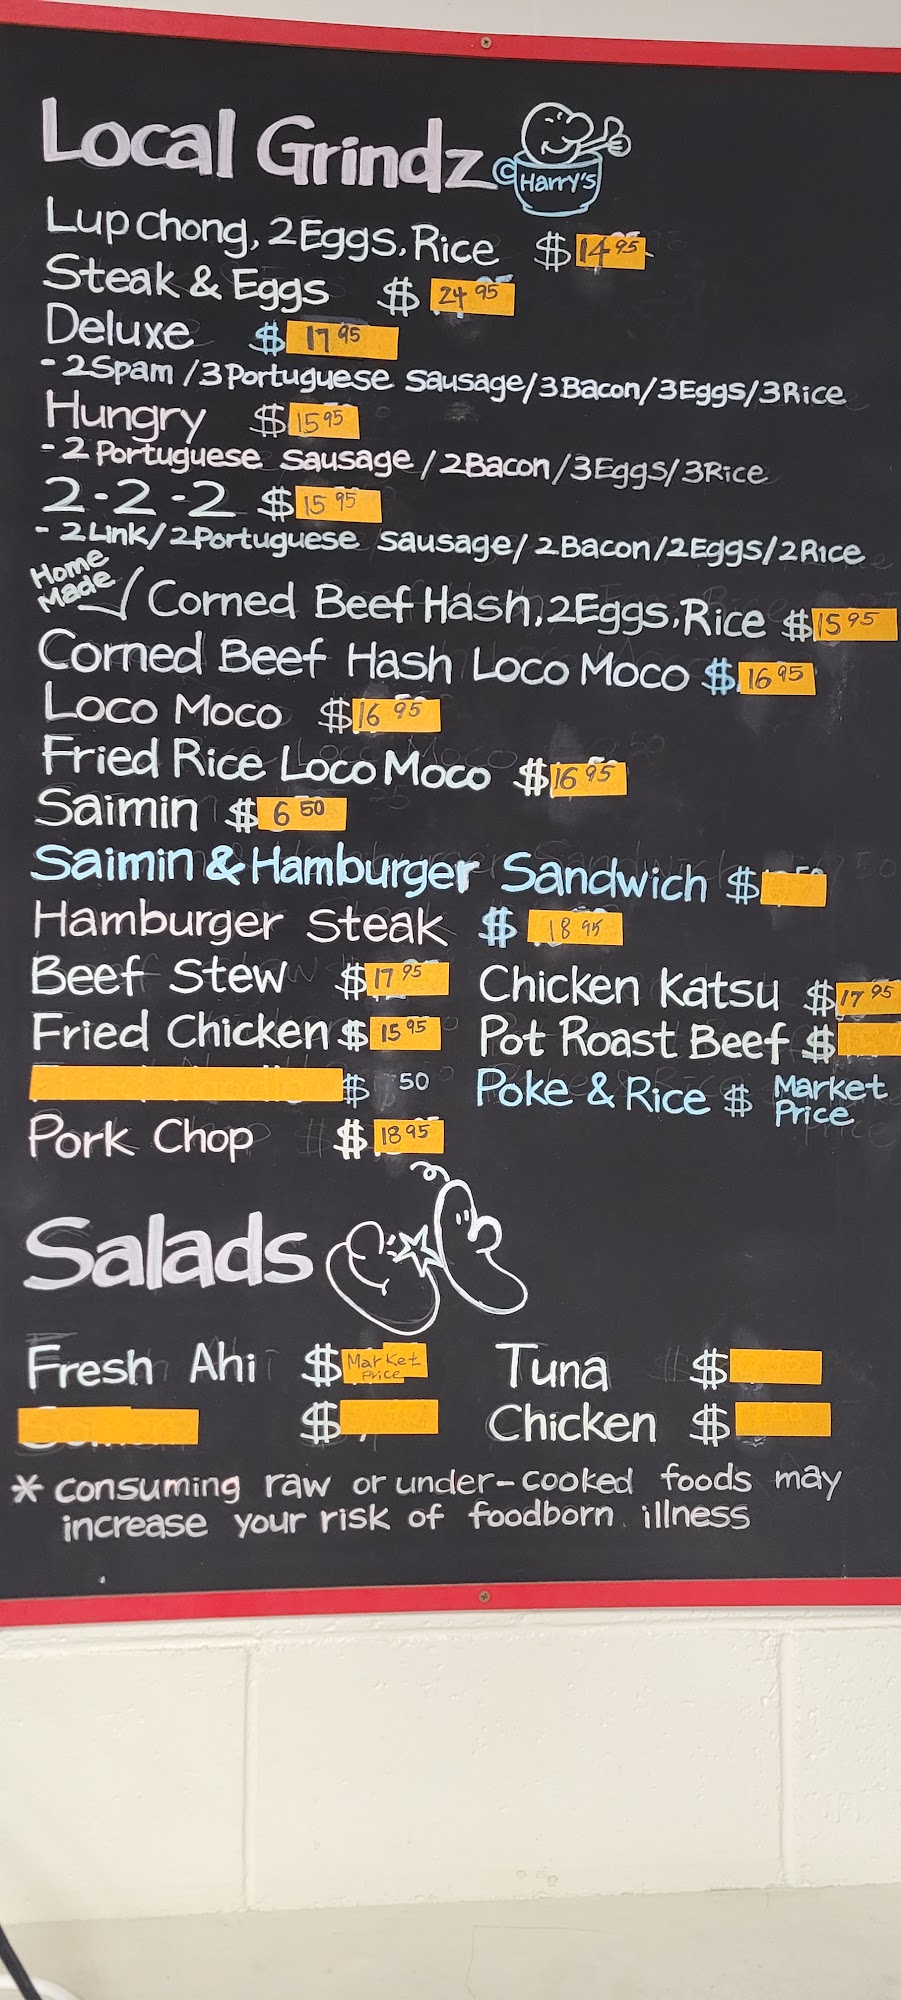 Local Grindz
Harry's
Lup Chong, 2 Eggs, Rice $ 14 95
Steak & Eggs $ 24 95
Deluxe $ 17 95
- 2 Spam / 3 Portuguese Sausage / 3 Bacon / 3 Eggs / 3 Rice
Hungry $ 15 95
- 2 Portuguese Sausage / 2 Bacon / 3 Eggs / 3 Rice
2-2-2 $ 15 95
- 2 Link / 2 Portuguese Sausage / 2 Bacon / 2 Eggs / 2 Rice
Home Made
Corned Beef Hash, 2 Eggs, Rice $ 15 95
Corned Beef Hash Loco Moco $ 16 95
Loco Moco $ 16 95
Fried Rice Loco Moco $ 16 95
Saimin $ 6 50
Saimin & Hamburger Sandwich $
Hamburger Steak $ 18 95
Beef Stew $ 17 95
Fried Chicken $ 15 95
$ 50
Pork Chop $ 18 95
Chicken Katsu $ 17 95
Pot Roast Beef $
Poke & Rice $ Market Price
Salads
Fresh Ahi $ Market Price
$
Tuna $
Chicken $
* consuming raw or under-cooked foods may
increase your risk of foodborn illness